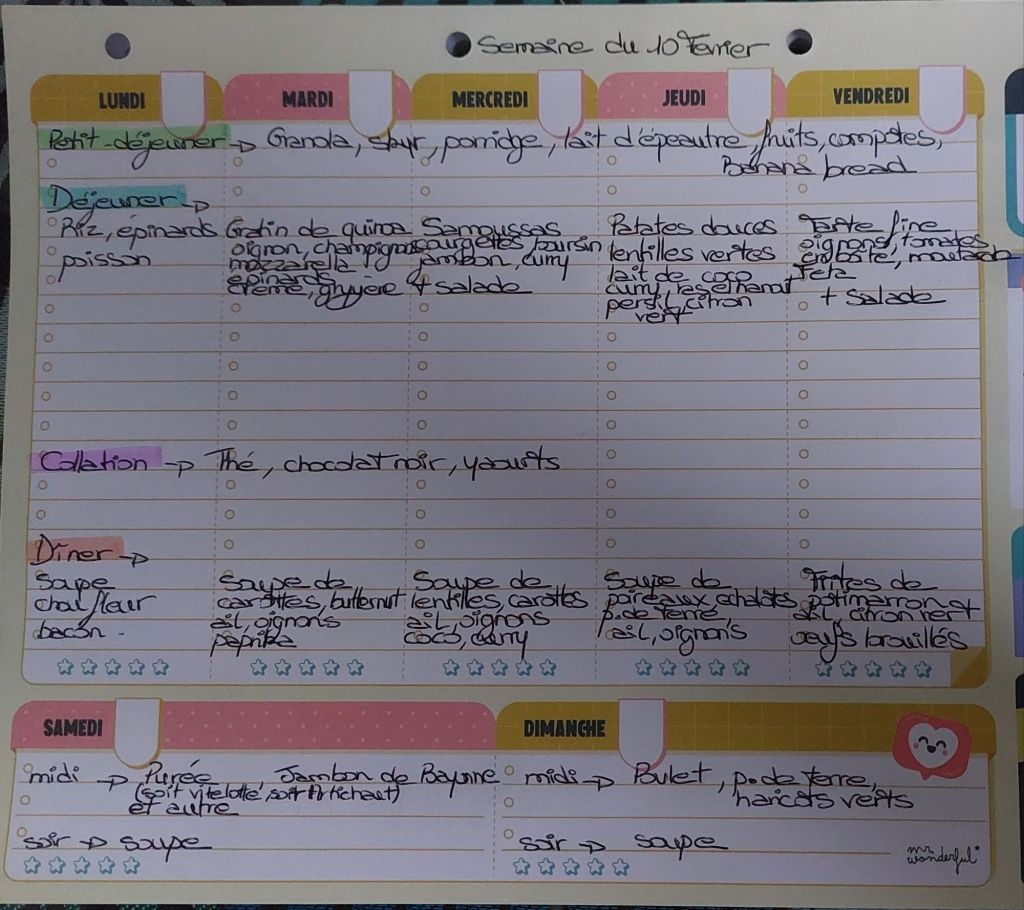 Semaine du 10 Fevrier
LUNDI MARDI MERCREDI JEUDI VENDREDI
Petit-déjeuner → Granola, skyr, porridge, lait d'épeautre, fruits, compotes,
Banana bread
Déjeuner →
Riz, épinards
poisson
Gratin de quinoa
oignon, champignons
mozzarella
épinards
crème, gruyère
Samoussas
courgettes, boursin
jambon, curry
+ salade
Patates douces
lentilles vertes
lait de coco
curry, ras el hanout
persil, citron
vert
Tarte fine
oignons, tomates
ciboule, moutarde
Feta
+ salade
Collation → Thé, chocolat noir, yaourts
Dîner →
Soupe
chou fleur
bacon.
Soupe de
carottes, butternut
ail, oignons
paprika
Soupe de
lentilles, carottes
ail, oignons
coco, curry
Soupe de
poireaux, echalotes
p. de terre
ail, oignons
Frites de
potimarron et
ail, citron vert
oeufs brouillés
SAMEDI
midi → Purée, Jambon de Bayonne
(soit vitelotte, soit artichaut)
et autre
soir → soupe
DIMANCHE
midi → Poulet, p. de terre,
haricots verts
soir → soupe
mr. wonderful*